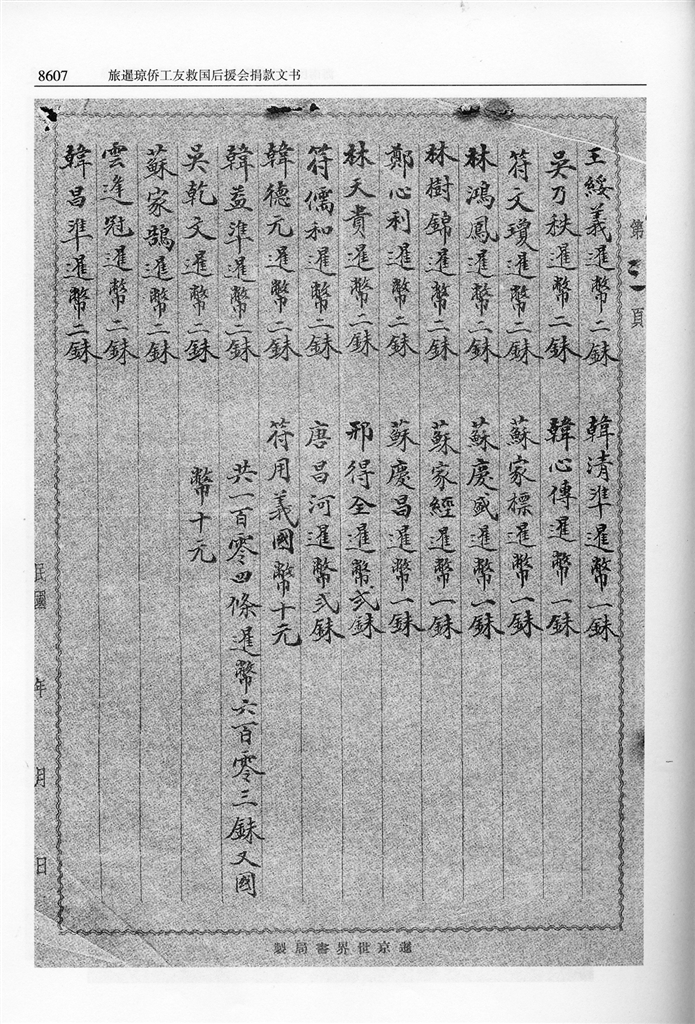 8607 旅暹琼侨工友救国后援会捐款文书
第三頁
王綏義暹幣二銖 韓清準暹幣一銖
吳乃秩暹幣二銖 韓心傳暹幣一銖
符文瓊暹幣二銖 蘇家標暹幣一銖
林鴻鳳暹幣二銖 蘇慶盛暹幣一銖
林樹錦暹幣二銖 蘇家經暹幣一銖
鄭心利暹幣二銖 蘇慶昌暹幣一銖
林天貴暹幣二銖 邢得全暹幣弍銖
符儒和暹幣二銖 唐昌河暹幣弍銖
韓德元暹幣二銖 符用義國幣十元
韓益準暹幣二銖 共一百零四條暹幣六百零三銖又國
吳乾文暹幣二銖 幣十元
蘇家鵠暹幣二銖
雲逢冠暹幣二銖
韓昌準暹幣二銖
民國 年 月 日
暹京世界書局製